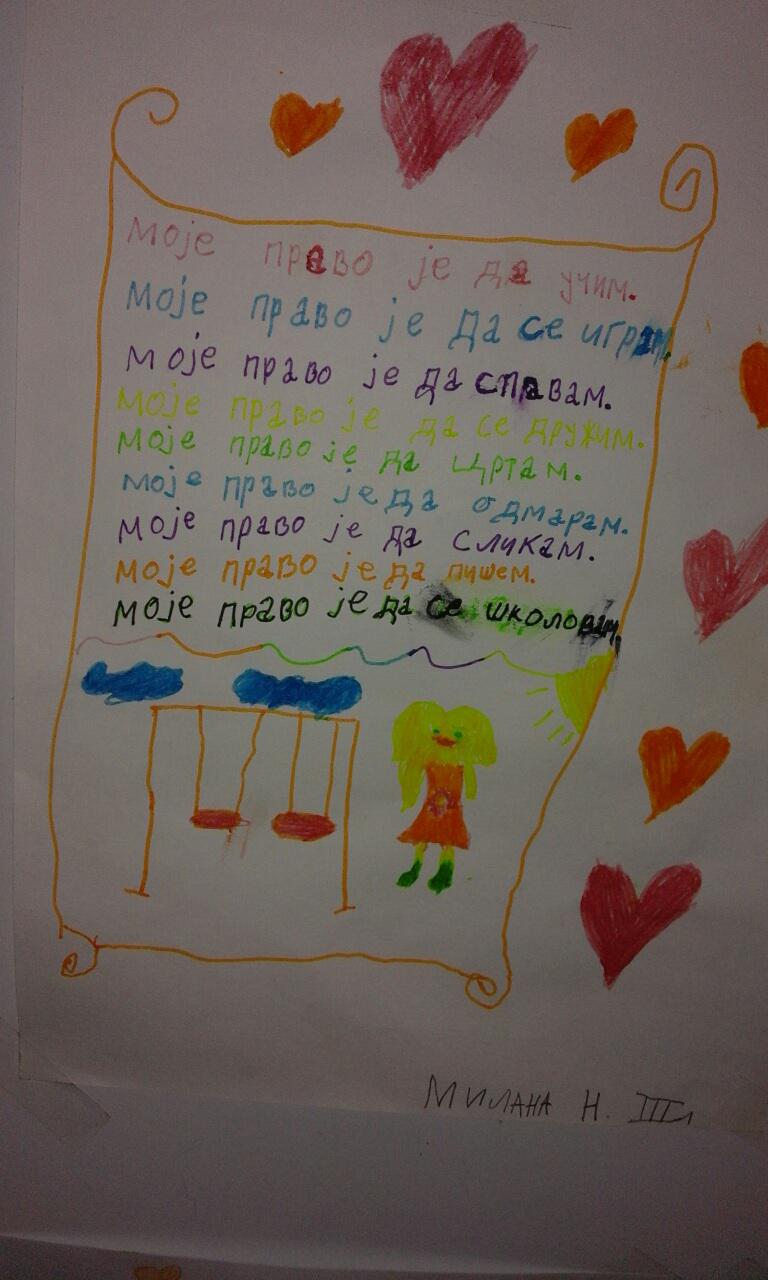 моје право је да учим.
моје право је да се играм.
моје право је да спавам.
моје право је да се дружим.
моје право је да цртам.
моје право је да одмарам.
моје право је да сликам.
моје право је да пишем.
моје право је да се школовам.
Милана Н. III1